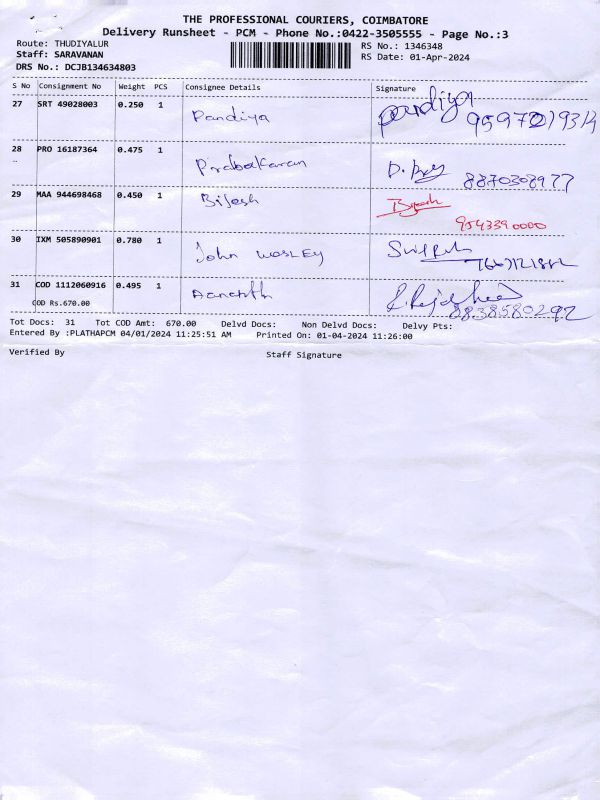 THE PROFESSIONAL COURIERS, COIMBATORE
Delivery Runsheet - PCM - Phone No.:0422-3505555 - Page No.:3
Route: THUDIYALUR RS No.: 1346348
Staff: SARAVANAN RS Date: 01-Apr-2024
DRS No.: DCJB134634803
S No Consignment No Weight PCS Consignee Details Signature
27 SRT 49028003 0.250 1 Pandiya pandiya
28 PRO 16187364 0.475 1 Prabakaran
8870308977
29 MAA 944698468 0.450 1 Bijesh Bijesh
9543390000
30 IXM 505890901 0.780 1 John WOSLEY
31 COD 1112060916 0.495 1
COD Rs.670.00 8838580292
Tot Docs: 31 Tot COD Amt: 670.00 Delvd Docs: Non Delvd Docs: Delvy Pts:
Entered By :PLATHAPCM 04/01/2024 11:25:51 AM Printed On: 01-04-2024 11:26:00
Verified By Staff Signature